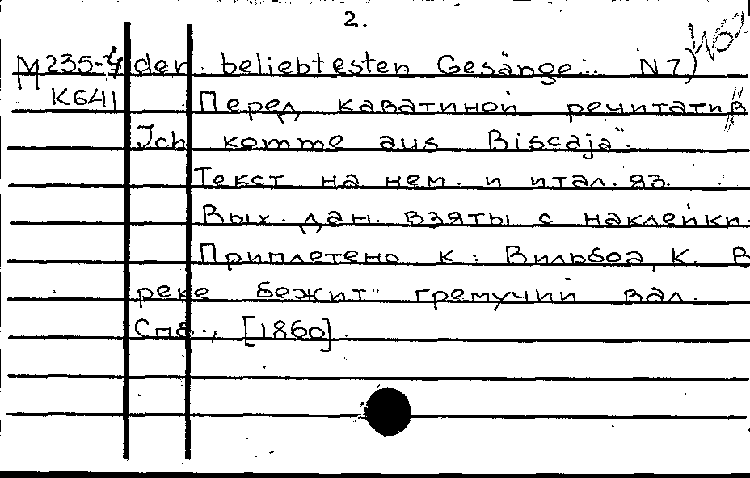 2.
M 235-4 der beliebtesten Gesänge... N 7)
K 641 Перед каватиной речитатив
"Ich komme aus Biscaja".
Текст на нем. и итал. яз.
Вых. дан. взяты с наклейки.
Приплетено к: Вильбоа, К. В
реке бежит гремучий вал.
Спб., [1860].